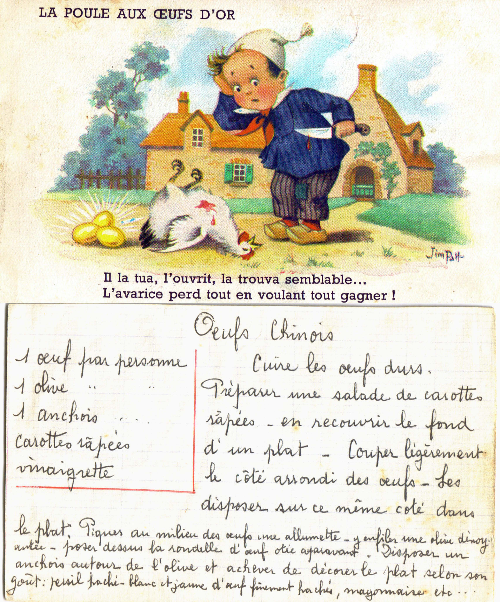 LA POULE AUX ŒUFS D'OR
Jim Patt
Il la tua, l'ouvrit, la trouva semblable...
L'avarice perd tout en voulant tout gagner !
Oeufs Chinois
1 œuf par personne
1 olive " "
1 anchois . . . .
carottes râpées
vinaigrette
Cuire les œufs durs.
Préparer une salade de carottes
râpées - en recouvrir le fond
d'un plat - Couper légèrement
le côté arrondi des œufs - Les
disposer sur ce même coté dans
le plat. Piquer au milieu des œufs une allumette - y enfiler une olive dénoy-
autée - poser dessus la rondelle d'œuf otée auparavant. Disposer un
anchois autour de l'olive et achever de décorer le plat selon son
goût : persil haché - blanc et jaune d'œuf finement hachés, mayonnaise etc...